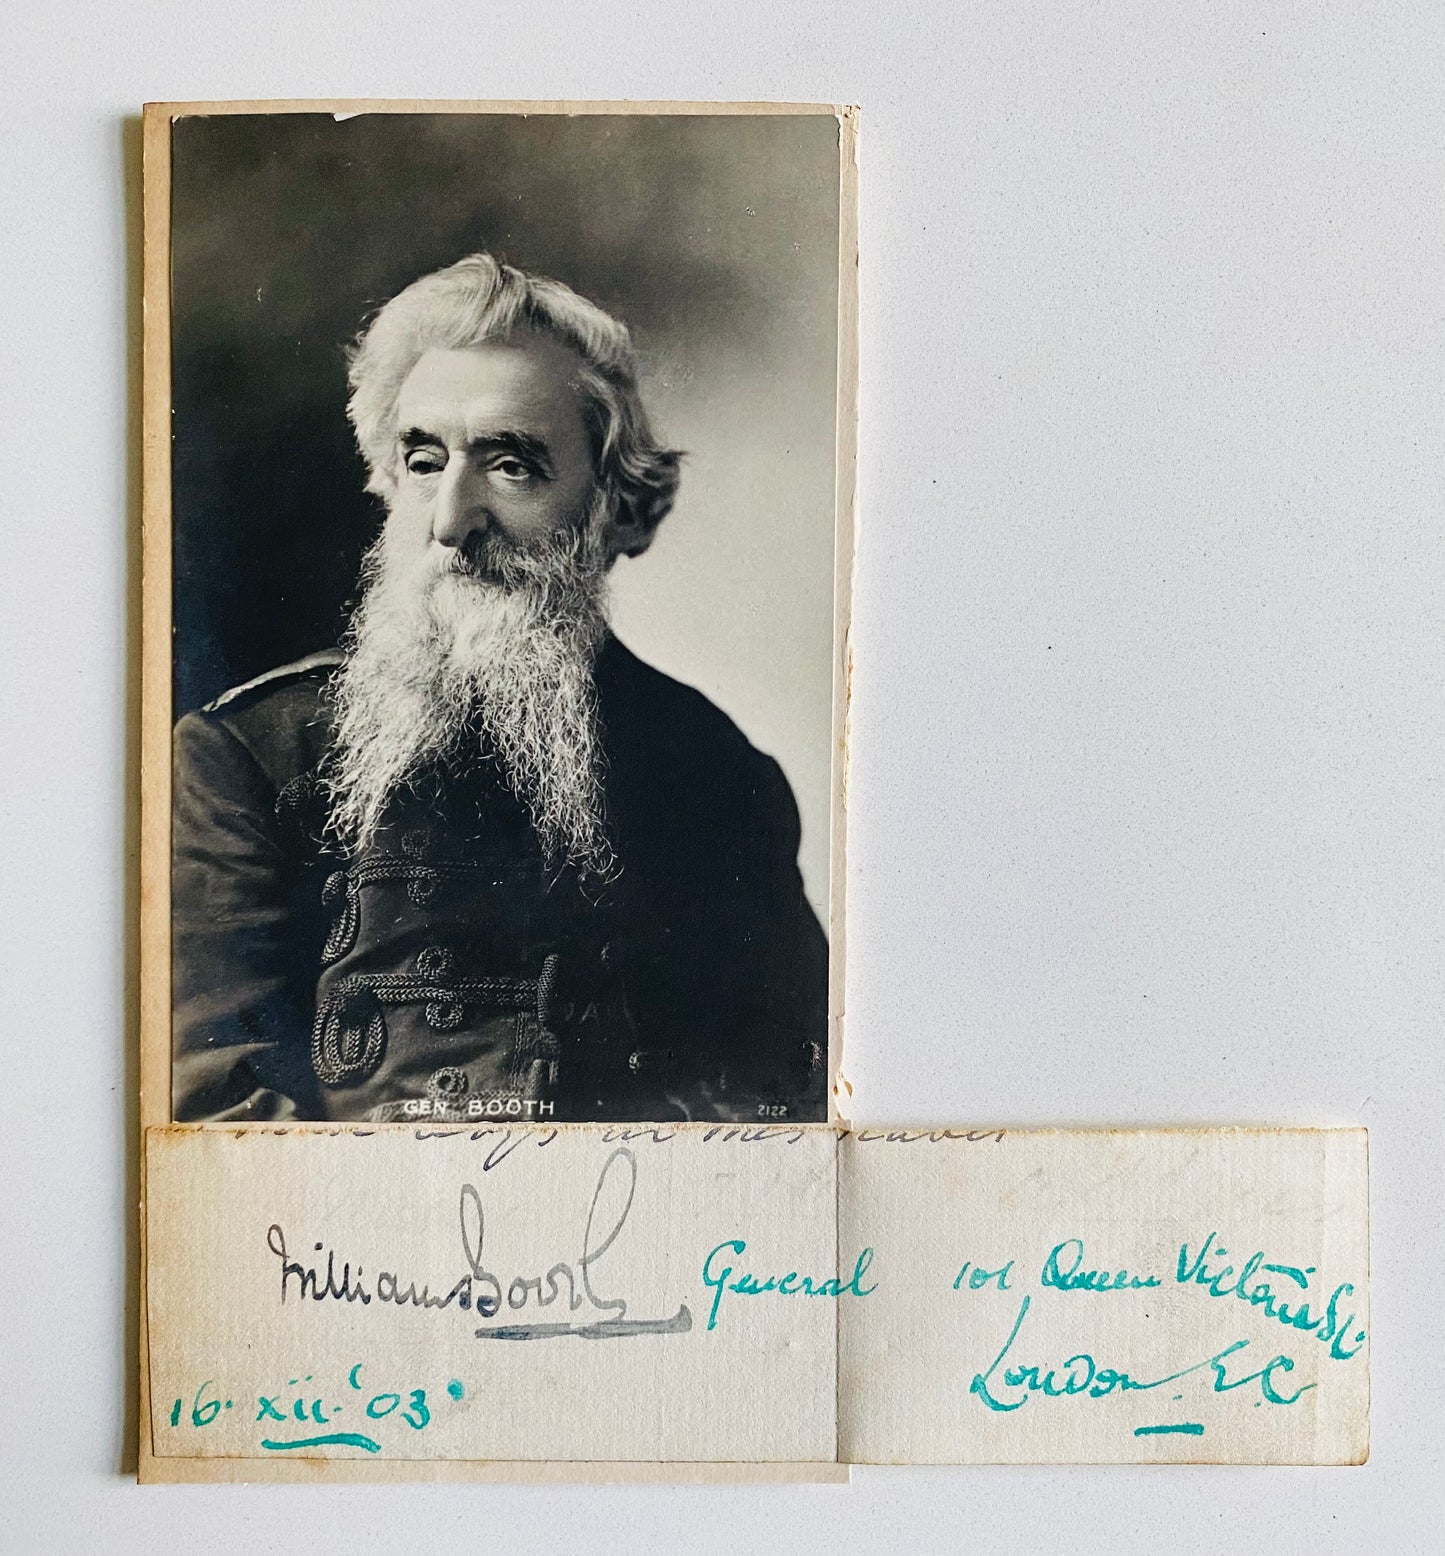 GEN BOOTH
2122
William Booth General 101 Queen Victoria St.
London. E.C.
16. xii. '03.